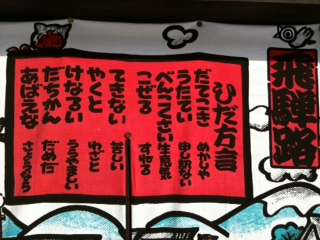 飛騨路
ひだ方言
だてこき　めかしや
うたてい　申し訳ない
べんこくさい　生意気
こぜる　すねる
できない　苦しい
やくと　わざと
けなるい　うらやましい
だちかん　だめだ
あばえな　さようなら